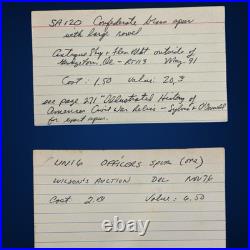 SA120 Confederate brass spur
with large rowel
Antique Shop & Flea Mkt outside of
Georgetown, De - Rt 113 May '91
Cost: 1.50 Value: 20,3
see page 271 "Illustrated History of
American Civil War Relics" - Sylvia & O'Donnell
for exact spur.
UN16 OFFICERS SPUR (ONE)
WILSON'S AUCTION DEL NOV 76
Cost 2.00 Value: 6.50